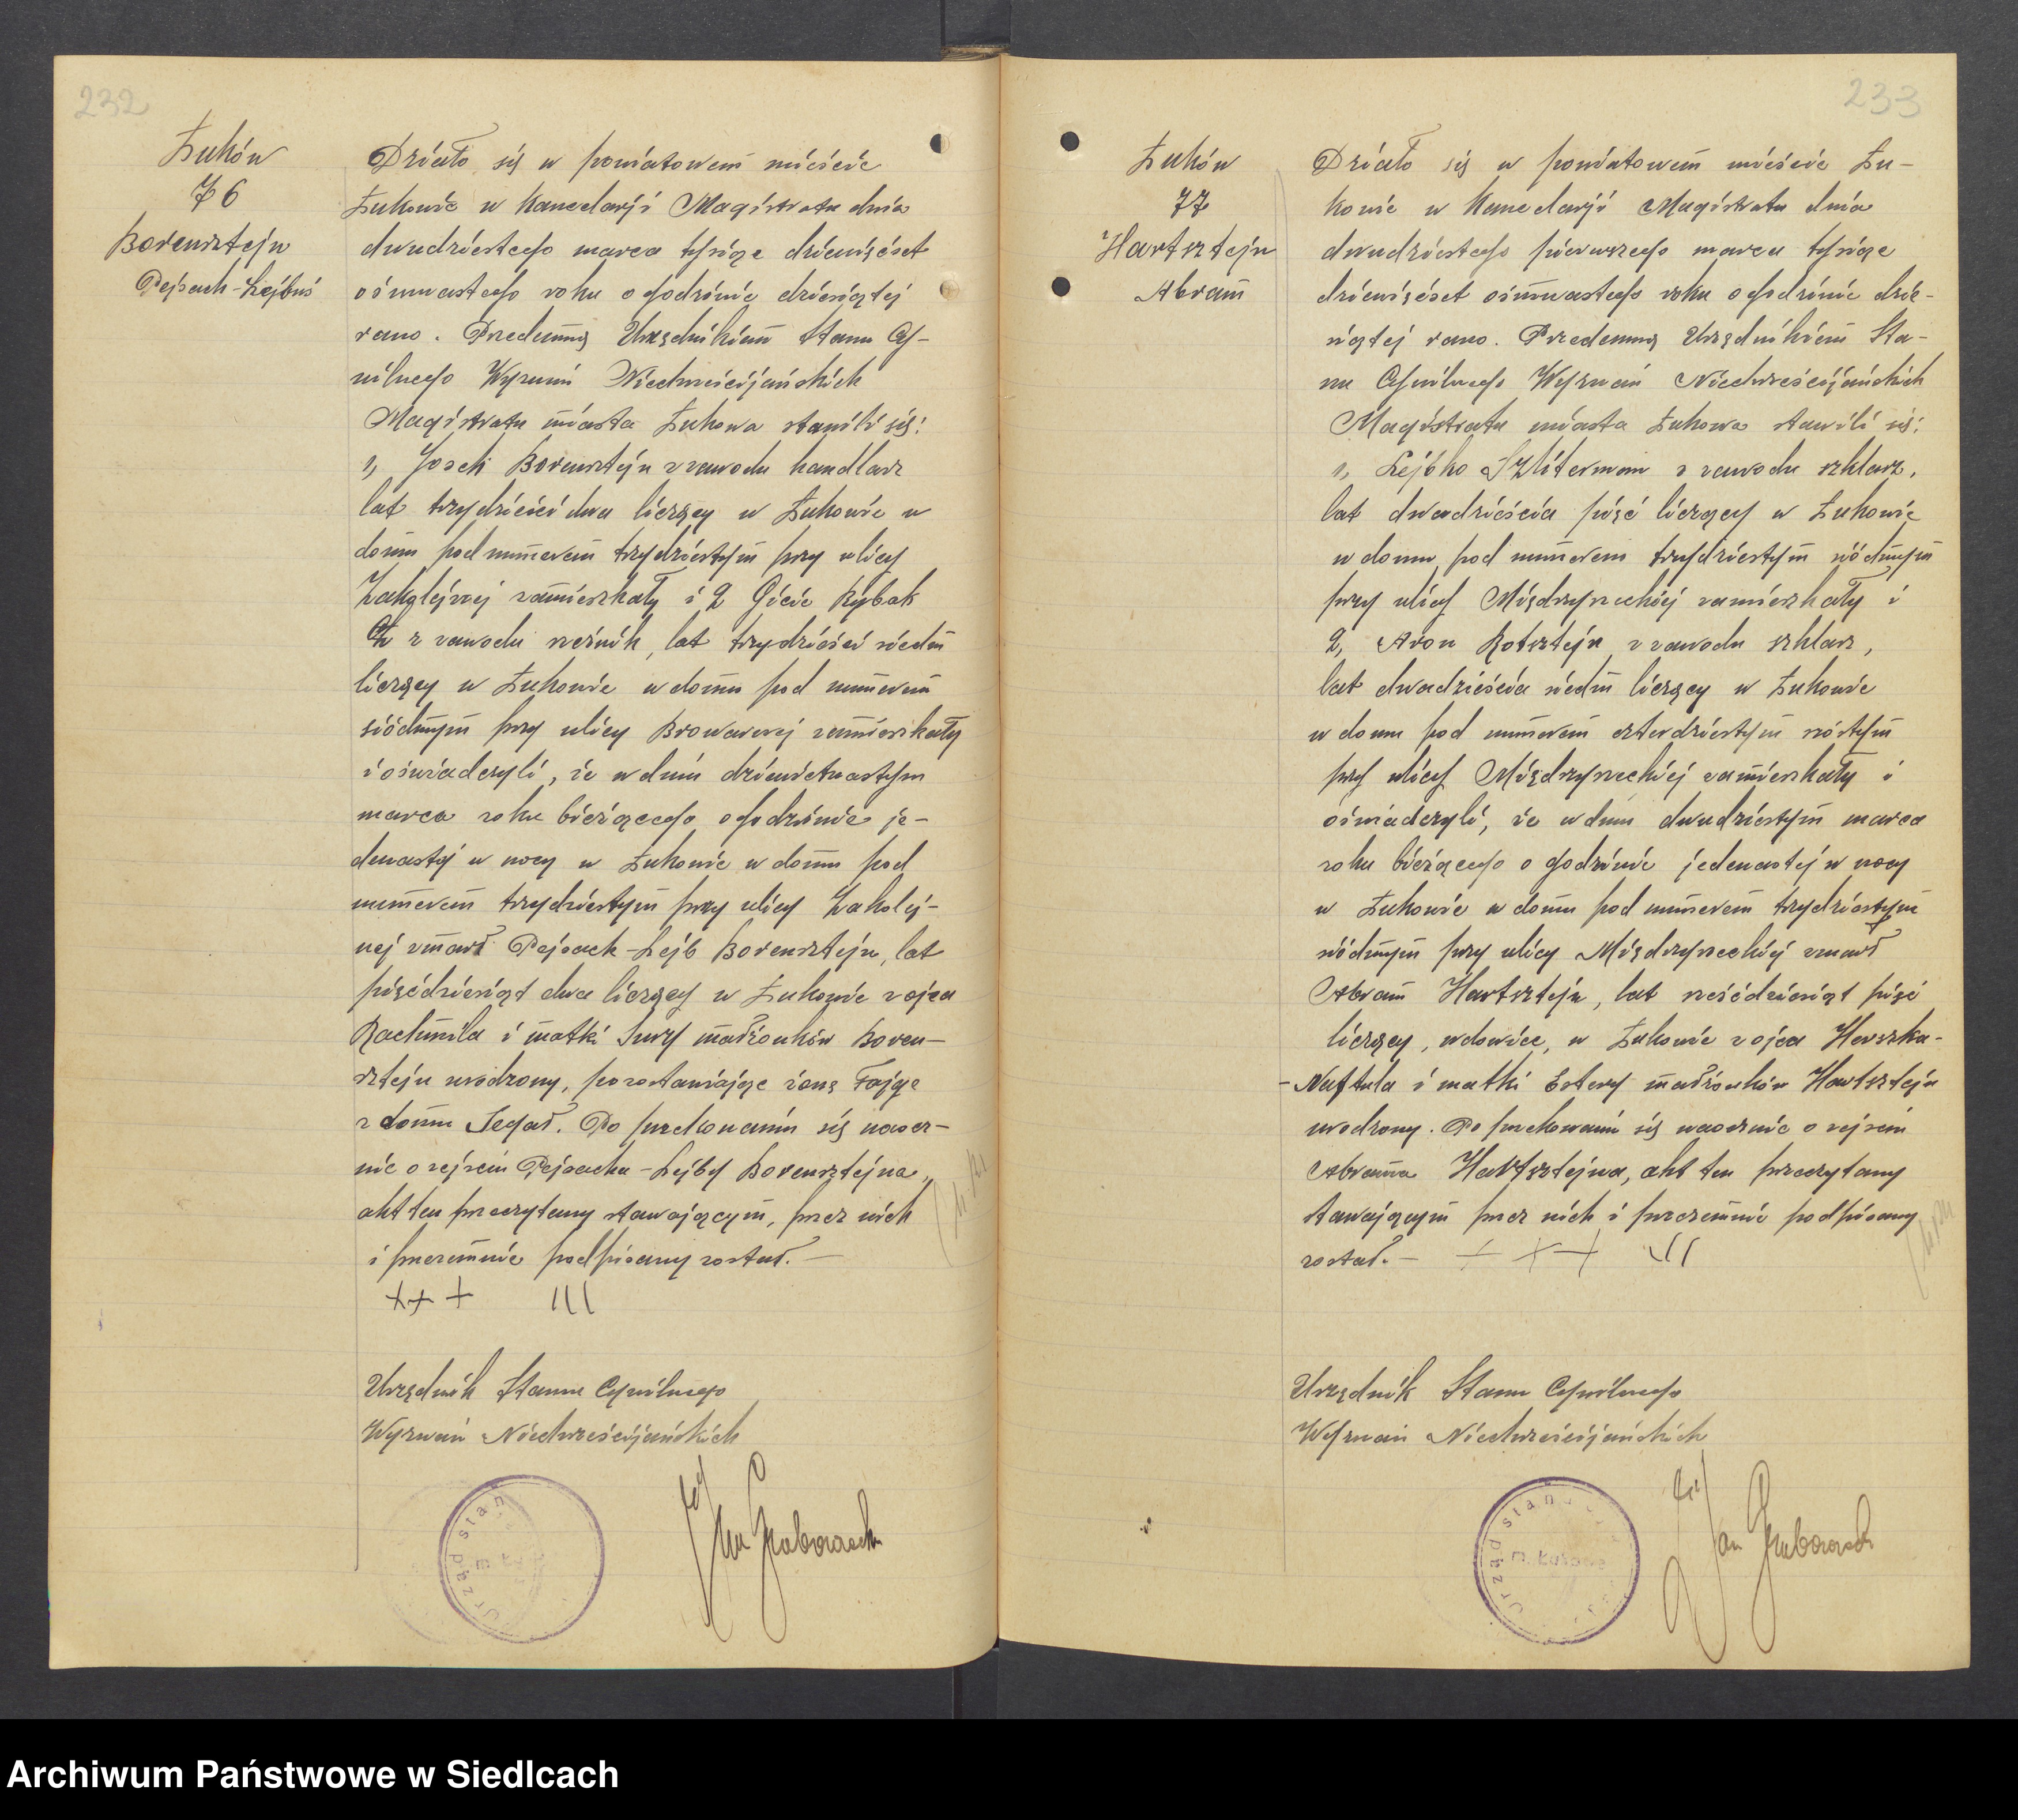 232
Łuków
76
Borensztejn
Pejsach-Lejbuś
Działo się w powiatowem mieście
Łukowie w Kancelarji Magistratu dnia
dwudziestego marca tysiąc dziewięćset
ośmnastego roku o godzinie dziesiątej
rano. Przedemną Urzędnikiem Stanu Cy-
wilnego Wyznań Niechrześcijańskich
Magistratu miasta Łukowa stawili się:
1, Josek Borensztejn z zawodu handlarz
lat trzydzieści dwa liczący w Łukowie w
domu pod numerem trzydziestym przy ulicy
Zakolejnej zamieszkały i 2 Gicie Rybak
z zawodu rzeźnik, lat trzydzieści siedm
liczący w Łukowie w domu pod numerem
siódmym przy ulicy Browarnej zamieszkały
i oświadczyli, że w dniu dziewietnastym
marca roku bieżącego o godzinie je-
denastej w nocy w Łukowie w domu pod
numerem trzydziestym przy ulicy Zakolej-
nej zmarł Pejsach-Lejb Borensztejn, lat
pięćdziesiąt dwa liczący w Łukowie z ojca
Rachmila i matki Sury małżonków Boren-
sztejn urodzony, pozostawiając żonę Fajgę
z domu Segał. Po przekonaniu się naocz-
nie o zejściu Pejsacha-Lejby Borensztejna,
akt ten przeczytany stawającym, przez nich
i przezemnie podpisany został.—
+++ \\\
Urzędnik Stanu Cywilnego
Wyznań Niechrześcijańskich
Urząd Stan
233
Łuków
77
Hartsztejn
Abram
Działo się w powiatowem mieście Łu-
kowie w Kancelarji Magistratu dnia
dwudziestego pierwszego marca tysiąc
dziewięćset ośmnastego roku o godzinie dzie-
siątej rano. Przedemną Urzędnikiem Sta-
nu Cywilnego Wyznań Niechrześcijańskich
Magistratu miasta Łukowa stawili się:
1, Lejbko Szliterman z zawodu szklarz,
lat dwadzieścia pięć liczący w Łukowie
w domu pod numerem trzydziestym siódmym
przy ulicy Międzyrzeckiej zamieszkały i
2, Aron Rotsztejn z zawodu szklarz,
lat dwadzieścia siedm liczący w Łukowie
w domu pod numerem czterdziestym szóstym
przy ulicy Międzyrzeckiej zamieszkały i
oświadczyli, że w dniu dwudziestym marca
roku bieżącego o godzinie jedenastej w nocy
w Łukowie w domu pod numerem trzydziestym
siódmym przy ulicy Międzyrzeckiej zmarł
Abram Hartsztejn, lat sześćdziesiąt pięć
liczący, wdowiec, w Łukowie z ojca Herszka-
-Naftula i matki Estery małżonków Hartsztejn
urodzony. Po przekonaniu się naocznie o zejściu
Abrama Hartsztejna, akt ten przeczytany
stawającym przez nich i przezemnie podpisany
został.— +++ \\\
Urzędnik Stanu Cywilnego
Wyznań Niechrześcijańskich
Urząd Stan
m. Łukowa
Jan
Archiwum Państwowe w Siedlcach